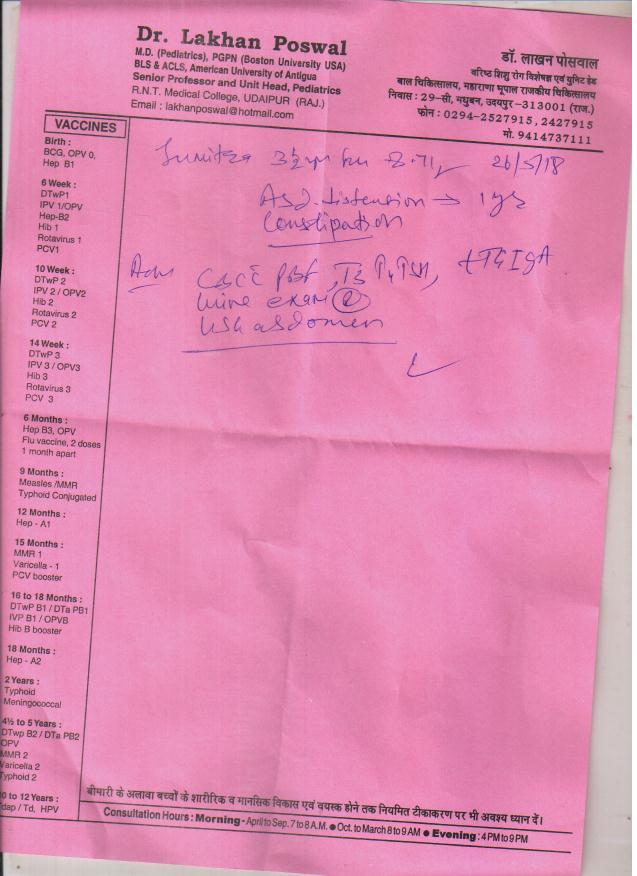 Dr. Lakhan Poswal
M.D. (Pediatrics), PGPN (Boston University USA)
BLS & ACLS, American University of Antigua
Senior Professor and Unit Head, Pediatrics
R.N.T. Medical College, UDAIPUR (RAJ.)
Email : lakhanposwal@hotmail.com
डॉ. लाखन पोसवाल
वरिष्ठ शिशु रोग विशेषज्ञ एवं युनिट हेड
बाल चिकित्सालय, महाराणा भूपाल राजकीय चिकित्सालय
निवास : 29-सी, मधुबन, उदयपुर-313001 (राज.)
फोन : 0294-2527915, 2427915
मो. 9414737111
VACCINES
Birth :
BCG, OPV 0,
Hep B1
6 Week :
DTwP1
IPV 1/OPV
Hep-B2
Hib 1
Rotavirus 1
PCV1
10 Week :
DTwP 2
IPV 2 / OPV2
Hib 2
Rotavirus 2
PCV 2
14 Week :
DTwP 3
IPV 3 / OPV3
Hib 3
Rotavirus 3
PCV 3
6 Months :
Hep B3, OPV
Flu vaccine, 2 doses
1 month apart
9 Months :
Measles /MMR
Typhoid Conjugated
12 Months :
Hep - A1
15 Months :
MMR 1
Varicella - 1
PCV booster
16 to 18 Months :
DTwP B1 / DTa PB1
IVP B1 / OPVB
Hib B booster
18 Months :
Hep - A2
2 Years :
Typhoid
Meningococcal
4½ to 5 Years :
DTwp B2 / DTa PB2
OPV
MMR 2
Varicella 2
Typhoid 2
0 to 12 Years :
Tdap / Td, HPV
26/5/18
distension → 1 yr
Constipation
Adv CBC PBF, T3 T4 TSH, tTG IgA
Urine exam
USG abdomen
बीमारी के अलावा बच्चों के शारीरिक व मानसिक विकास एवं वयस्क होने तक नियमित टीकाकरण पर भी अवश्य ध्यान दें।
Consultation Hours : Morning - April to Sep. 7 to 8 A.M. ● Oct. to March 8 to 9 AM ● Evening : 4 PM to 9 PM